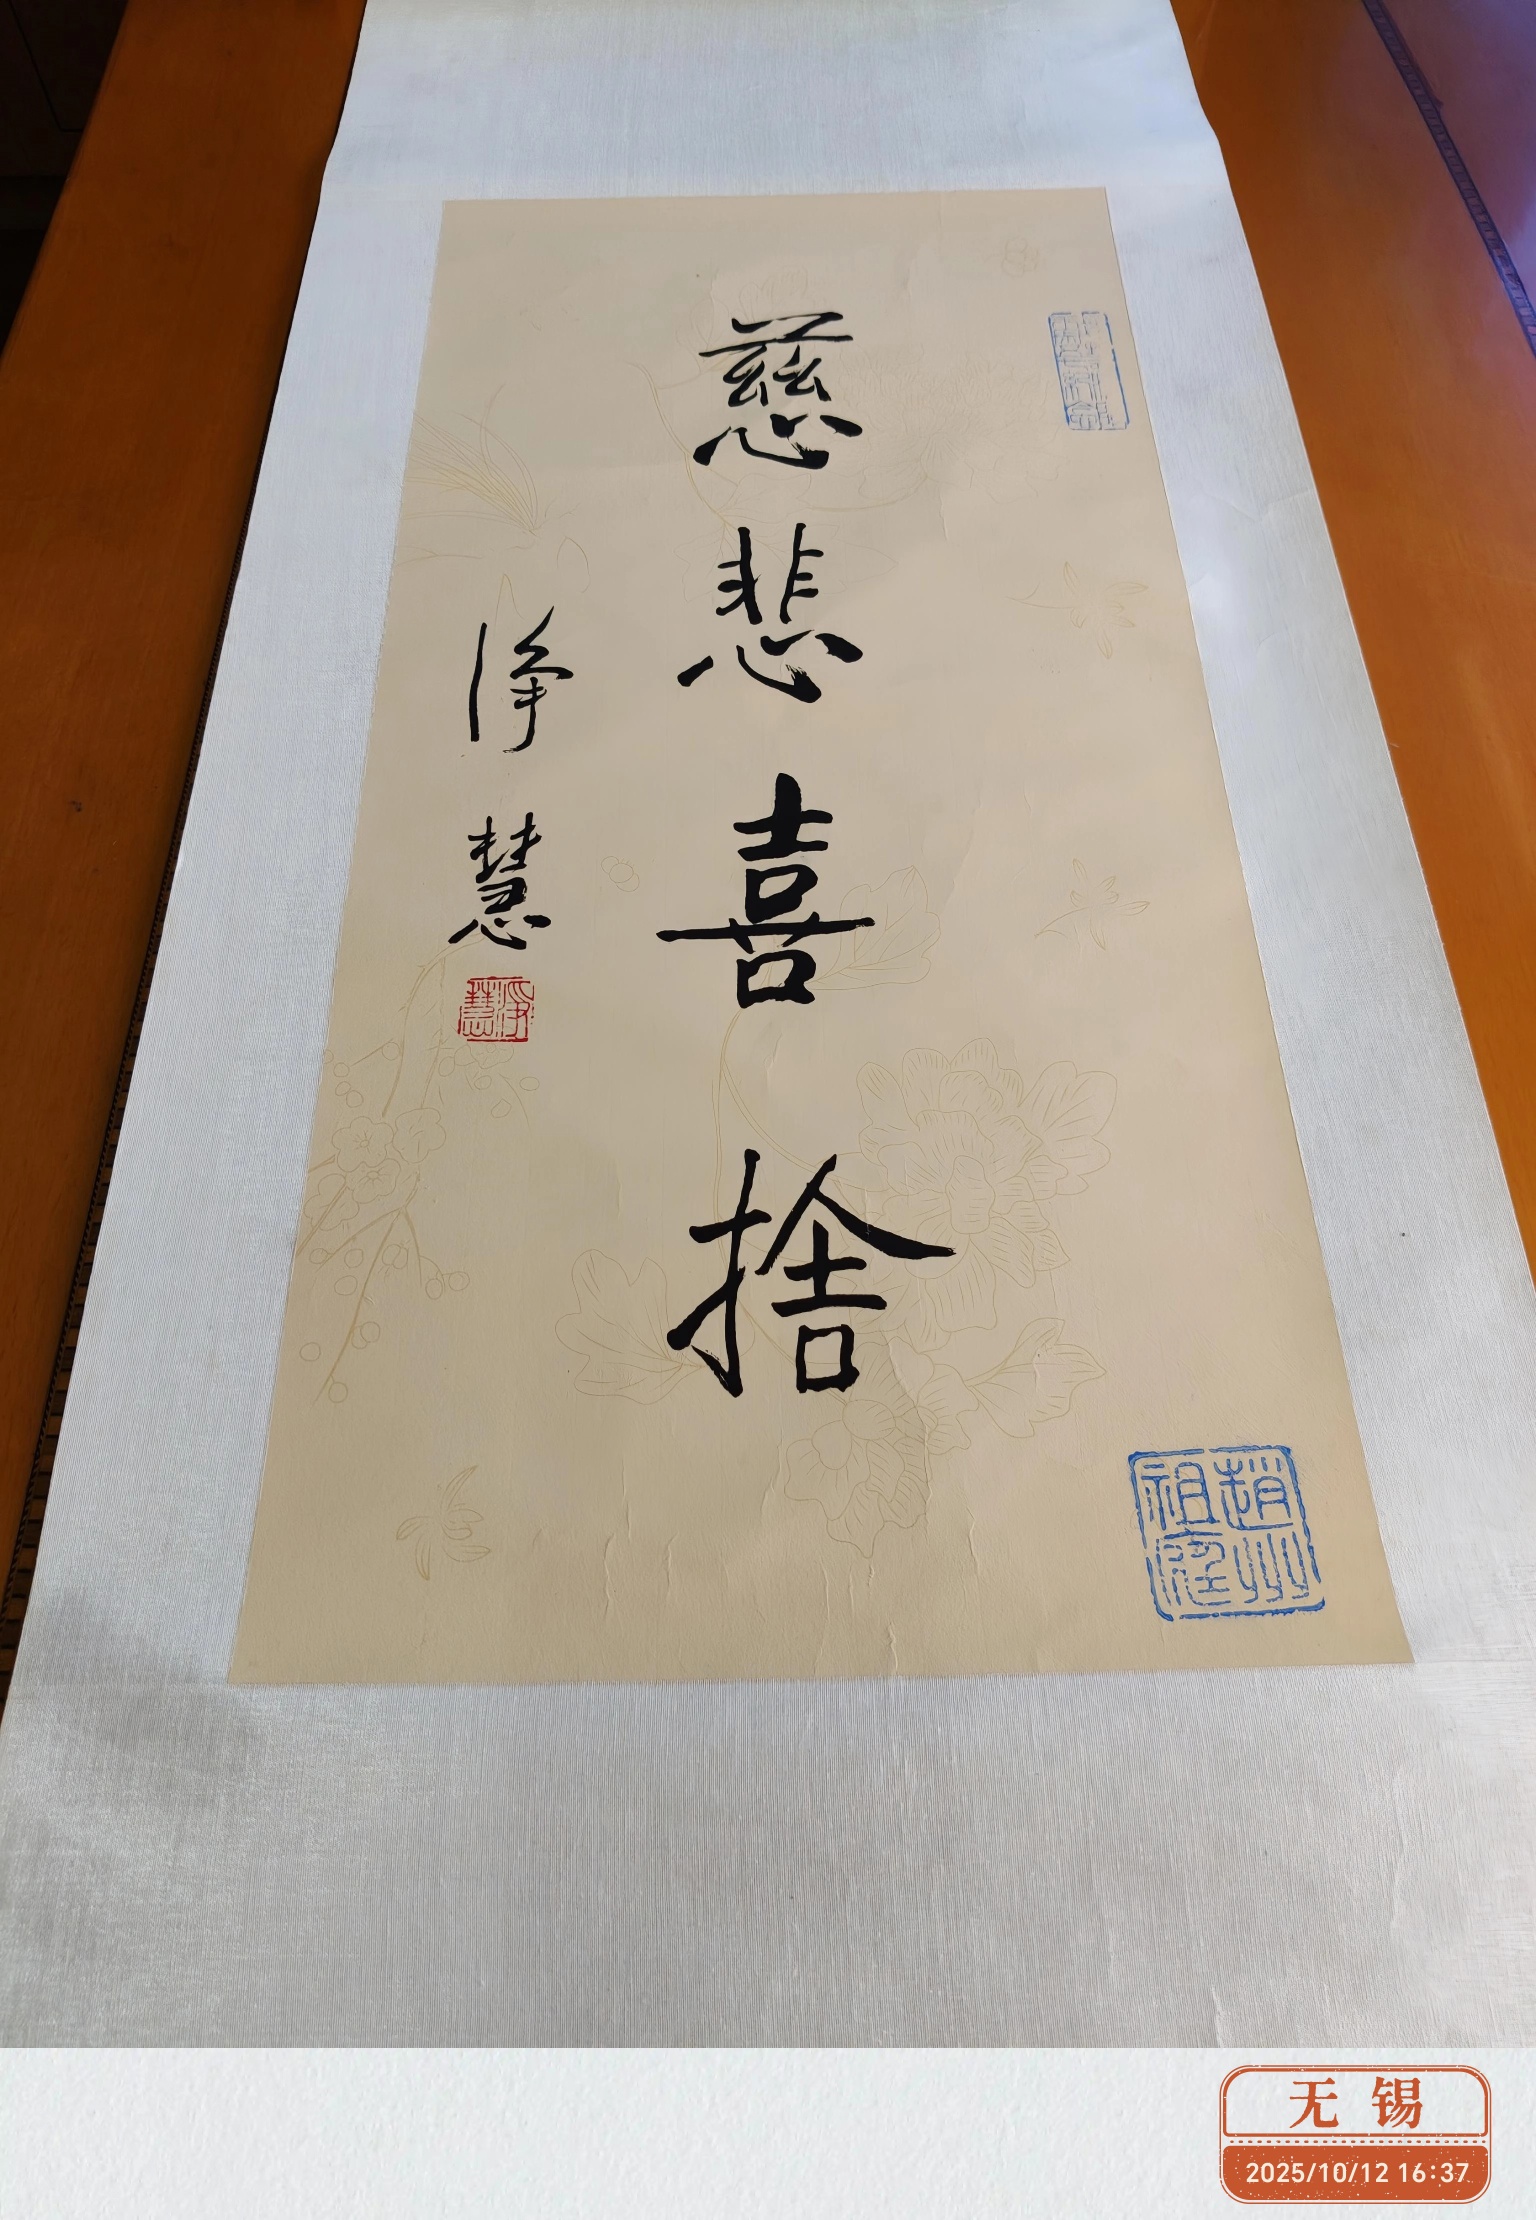 慈悲喜捨
净慧
净慧
趙州
祖庭
无锡
2025/10/12 16:37